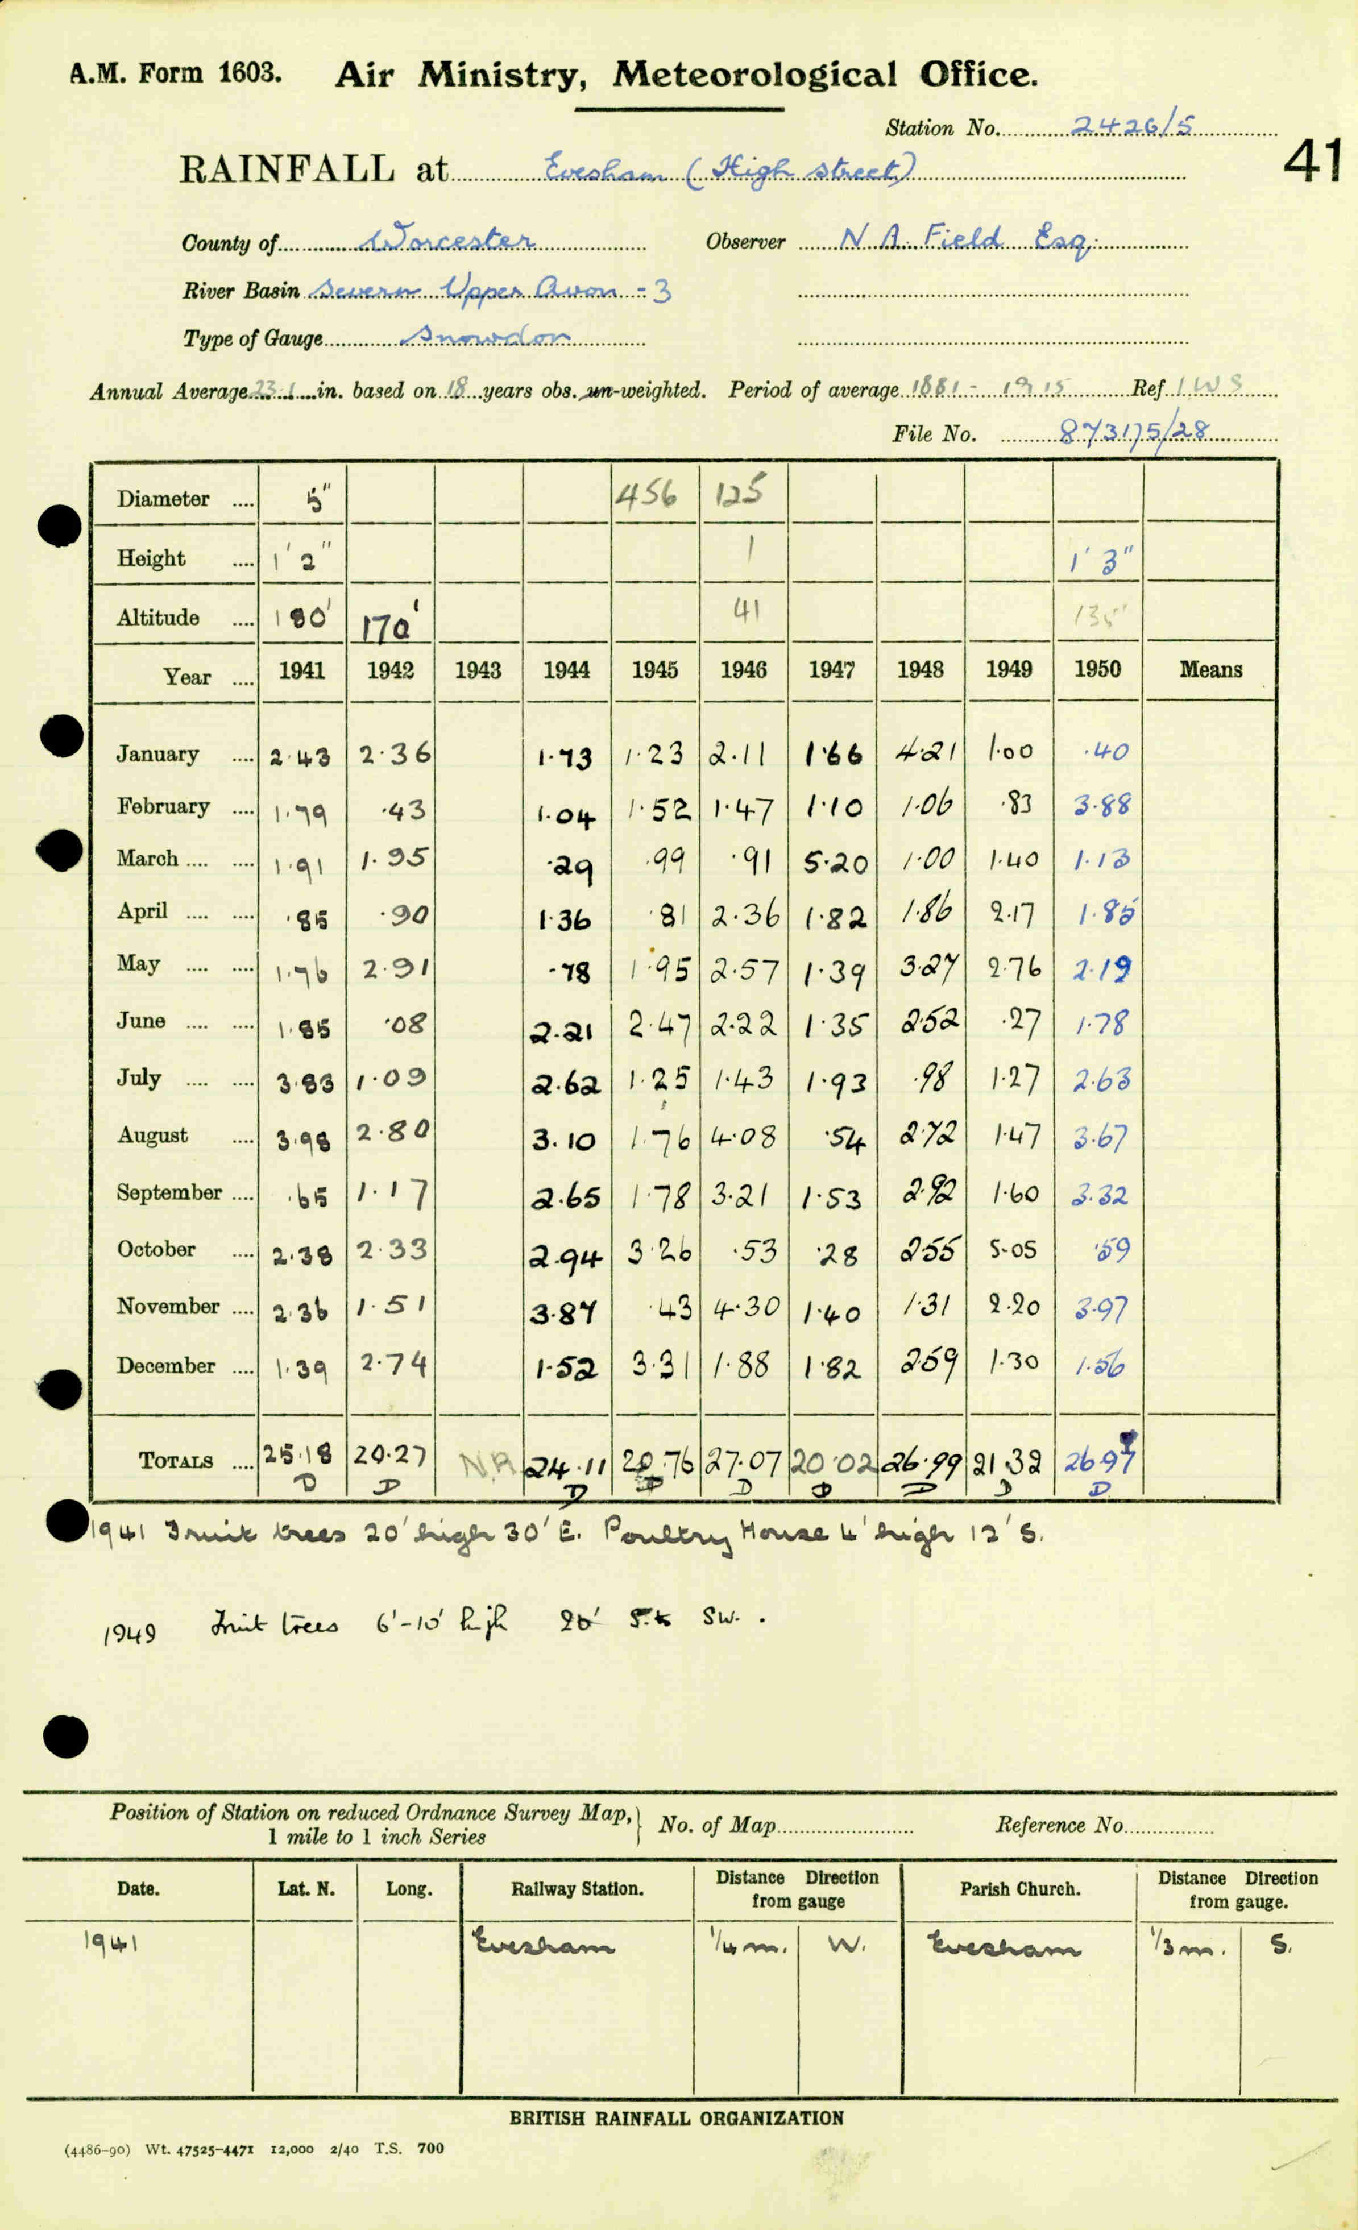 A.M. Form 1603. Air Ministry, Meteorological Office.
Station No. 2426/5
41
RAINFALL at Evesham (High Street)
County of Worcester Observer N A. Field Esq.
River Basin Severn Upper Avon - 3
Type of Gauge Snowdon
Annual Average 23.1 in. based on 18 years obs. un-weighted. Period of average 1881 - 1915 Ref IWS
File No. 873175/28
Diameter .... 5" 456 125
Height .... 1' 2" 1 1' 3"
Altitude .... 180' 170' 41 135'
Year .... 1941 1942 1943 1944 1945 1946 1947 1948 1949 1950 Means
January .... 2.43 2.36 1.73 1.23 2.11 1.66 4.21 1.00 .40
February .... 1.79 .43 1.04 1.52 1.47 1.10 1.06 .83 3.88
March .... .... 1.91 1.95 .29 .99 .91 5.20 1.00 1.40 1.13
April .... .... .85 .90 1.36 .81 2.36 1.82 1.86 2.17 1.85
May .... .... 1.76 2.91 .78 1.95 2.57 1.39 3.27 2.76 2.19
June .... .... 1.85 .08 2.21 2.47 2.22 1.35 2.52 .27 1.78
July .... .... 3.83 1.09 2.62 1.25 1.43 1.93 .98 1.27 2.63
August .... 3.98 2.80 3.10 1.76 4.08 .54 2.72 1.47 3.67
September .... .65 1.17 2.65 1.78 3.21 1.53 2.92 1.60 3.32
October .... 2.38 2.33 2.94 3.26 .53 .28 2.55 5.05 .59
November .... 2.36 1.51 3.87 .43 4.30 1.40 1.31 2.20 3.97
December .... 1.39 2.74 1.52 3.31 1.88 1.82 2.59 1.30 1.56
TOTALS .... 25.18 20.27 N.R. 24.11 20.76 27.07 20.02 26.99 21.32 26.97
D D D D D D D D D
1941 Fruit trees 20' high 30' E. Poultry House 4' high 12' S.
1949 Fruit trees 6'-10' high 20' SW.
Position of Station on reduced Ordnance Survey Map, } No. of Map Reference No.
1 mile to 1 inch Series
Date. Lat. N. Long. Railway Station. Distance Direction from gauge Parish Church. Distance Direction from gauge.
1941 Evesham 1/4 m. W. Evesham 1/3 m. S.
BRITISH RAINFALL ORGANIZATION
(4486-90) Wt. 47525-4471 12,000 2/40 T.S. 700